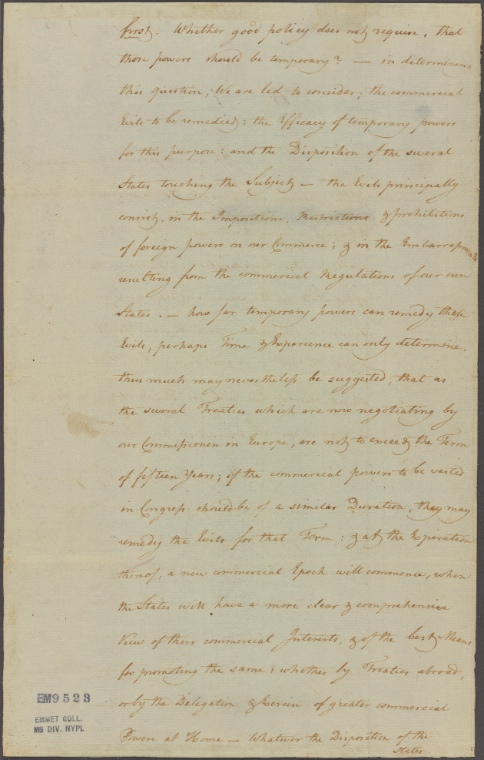 first. Whether good policy does not require, that
those powers should be temporary? — in determining
this question, We are led to consider, the commercial
Evils to be remedied: the Efficacy of temporary powers
for this purpose: and the Disposition of the several
States touching the Subject — the Evils principally
consist, in the Impositions, Restrictions & prohibitions
of foreign powers on our Commerce; & in the Embarrassments
resulting from the commercial Regulations of our own
States. — how far temporary powers can remedy these
Evils, perhaps Time & Experience can only determine.
thus much may nevertheless be suggested, that as
the several Treaties which are now negotiating by
our Commissioners in Europe, are not to exceed the Term
of fifteen Years; if the commercial powers to be vested
in Congress should be of a similar Duration, they may
remedy the Evils for that Term: & at the Expiration
thereof, a new commercial Epoch will commence, when
the States will have a more clear & comprehensive
View of their commercial Interests, & of the best Means
for promoting the same; whether by Treaties abroad,
or by the Delegation & Exercise of greater commercial
Powers at Home — Whatever the Disposition of the
States
EM9523
EMMET COLL.
MS DIV. NYPL